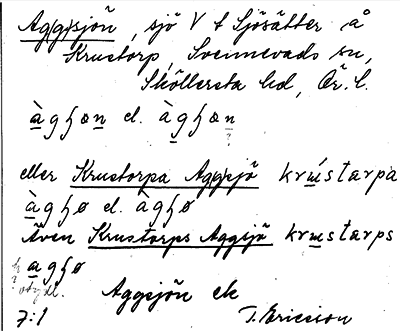 Aggsjön, sjö V t Sjösätter å
Krustorp, Svennevads sn,
Sköllersta hd, Ör. l.
àgɧøn el. àgɧøn
eller Krustorpa Aggsjö krùstarpa
àgɧø el. àgɧø
Även Krustorps Aggsjö krustarps
agɧø
?
otydl.
Aggsjön ek
7:1 T. Ericsson